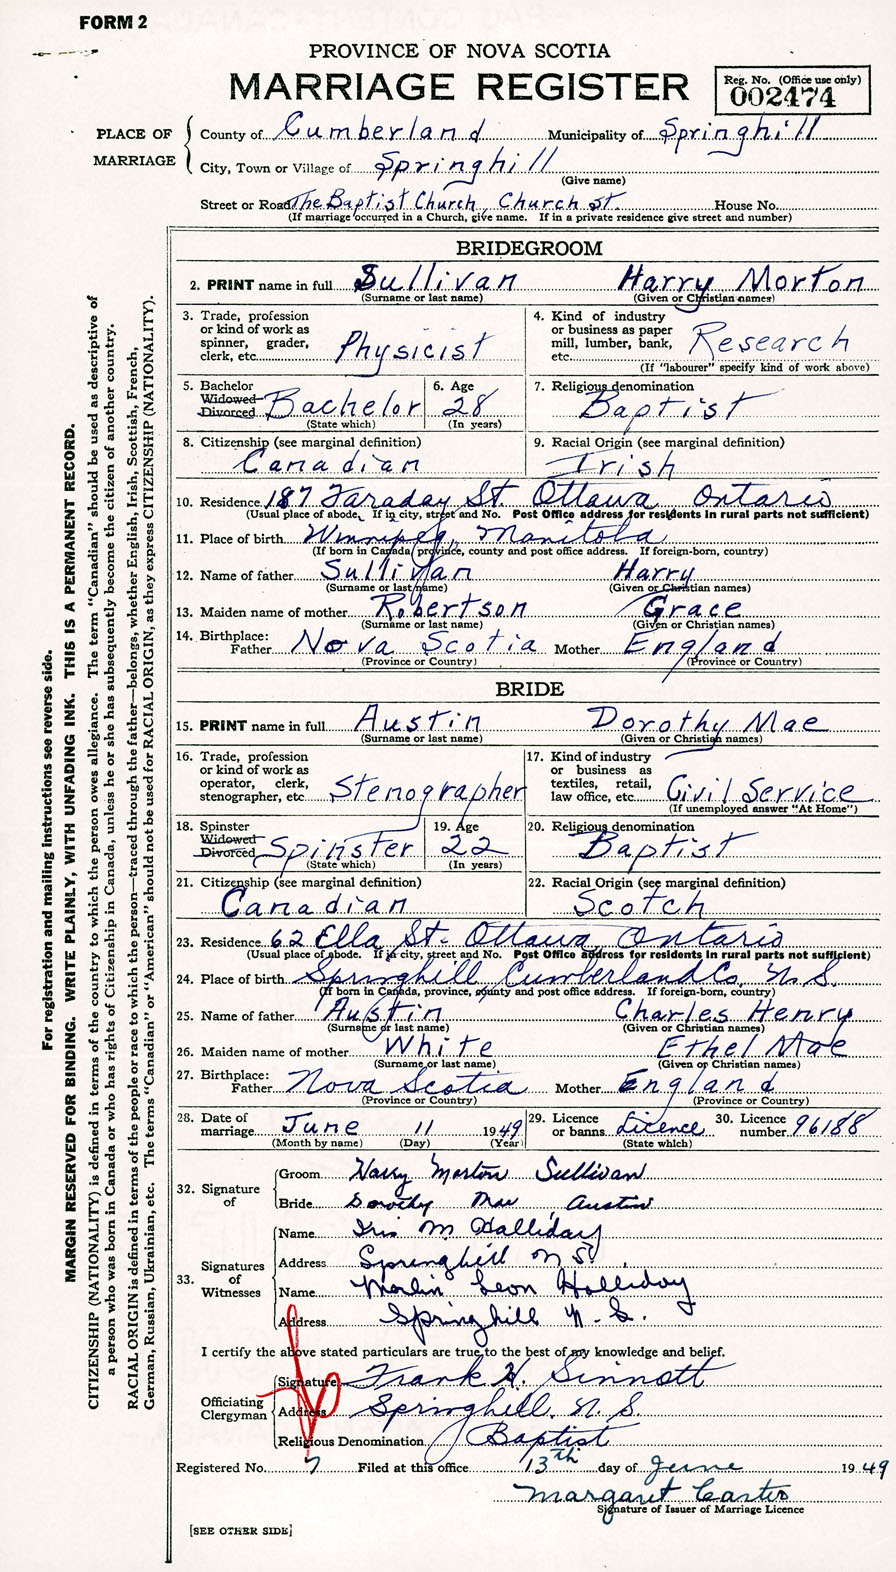 FORM 2
PROVINCE OF NOVA SCOTIA
MARRIAGE REGISTER
Reg. No. (Office use only)
002474
PLACE OF MARRIAGE
County of Cumberland Municipality of Springhill
City, Town or Village of Springhill
(Give name)
Street or Road The Baptist Church, Church St. House No.
(If marriage occurred in a Church, give name. If in a private residence give street and number)
BRIDEGROOM
2. PRINT name in full Sullivan Harry Morton
(Surname or last name) (Given or Christian names)
3. Trade, profession or kind of work as spinner, grader, clerk, etc. Physicist
4. Kind of industry or business as paper mill, lumber, bank, etc. Research
(If "labourer" specify kind of work above)
5. Bachelor Widowed Divorced Bachelor
(State which)
6. Age 28
(In years)
7. Religious denomination
Baptist
8. Citizenship (see marginal definition)
Canadian
9. Racial Origin (see marginal definition)
Irish
10. Residence 187 Faraday St. Ottawa Ontario
(Usual place of abode. If in city, street and No. Post Office address for residents in rural parts not sufficient)
11. Place of birth Winnipeg, Manitoba
(If born in Canada, province, county and post office address. If foreign-born, country)
12. Name of father Sullivan Harry
(Surname or last name) (Given or Christian names)
13. Maiden name of mother Robertson Grace
(Surname or last name) (Given or Christian names)
14. Birthplace:
Father Nova Scotia Mother England
(Province or Country) (Province or Country)
BRIDE
15. PRINT name in full Austin Dorothy Mae
(Surname or last name) (Given or Christian names)
16. Trade, profession or kind of work as operator, clerk, stenographer, etc. Stenographer
17. Kind of industry or business as textiles, retail, law office, etc. Civil Service
(If unemployed answer "At Home")
18. Spinster Widowed Divorced Spinster
(State which)
19. Age 22
(In years)
20. Religious denomination
Baptist
21. Citizenship (see marginal definition)
Canadian
22. Racial Origin (see marginal definition)
Scotch
23. Residence 62 Ella St. Ottawa, Ontario
(Usual place of abode. If in city, street and No. Post Office address for residents in rural parts not sufficient)
24. Place of birth Springhill, Cumberland Co. N.S.
(If born in Canada, province, county and post office address. If foreign-born, country)
25. Name of father Austin Charles Henry
(Surname or last name) (Given or Christian names)
26. Maiden name of mother White Ethel Mae
(Surname or last name) (Given or Christian names)
27. Birthplace:
Father Nova Scotia Mother England
(Province or Country) (Province or Country)
28. Date of marriage June 11 1949
(Month by name) (Day) (Year)
29. Licence or banns Licence
(State which)
30. Licence number 96188
32. Signature of
Groom Harry Morton Sullivan
Bride Dorothy Mae Austin
33. Signatures of Witnesses
Name Iris M Halliday
Address Springhill N S.
Name Merlin Leon Halliday
Address Springhill N.S.
I certify the above stated particulars are true to the best of my knowledge and belief.
Officiating Clergyman
Signature Frank H. Sinnott
Address Springhill. N.S.
Religious Denomination Baptist
Registered No. 7 Filed at this office 13th day of June 1949
Margaret Carter
Signature of Issuer of Marriage Licence
[SEE OTHER SIDE]
For registration and mailing instructions see reverse side.
MARGIN RESERVED FOR BINDING. WRITE PLAINLY, WITH UNFADING INK. THIS IS A PERMANENT RECORD.
CITIZENSHIP (NATIONALITY) is defined in terms of the country to which the person owes allegiance. The term "Canadian" should be used as descriptive of
a person who was born in Canada or who has rights of Citizenship in Canada, unless he or she has subsequently become the citizen of another country.
RACIAL ORIGIN is defined in terms of the people or race to which the person—traced through the father—belongs, whether English, Irish, Scottish, French,
German, Russian, Ukrainian, etc. The terms "Canadian" or "American" should not be used for RACIAL ORIGIN, as they express CITIZENSHIP (NATIONALITY).